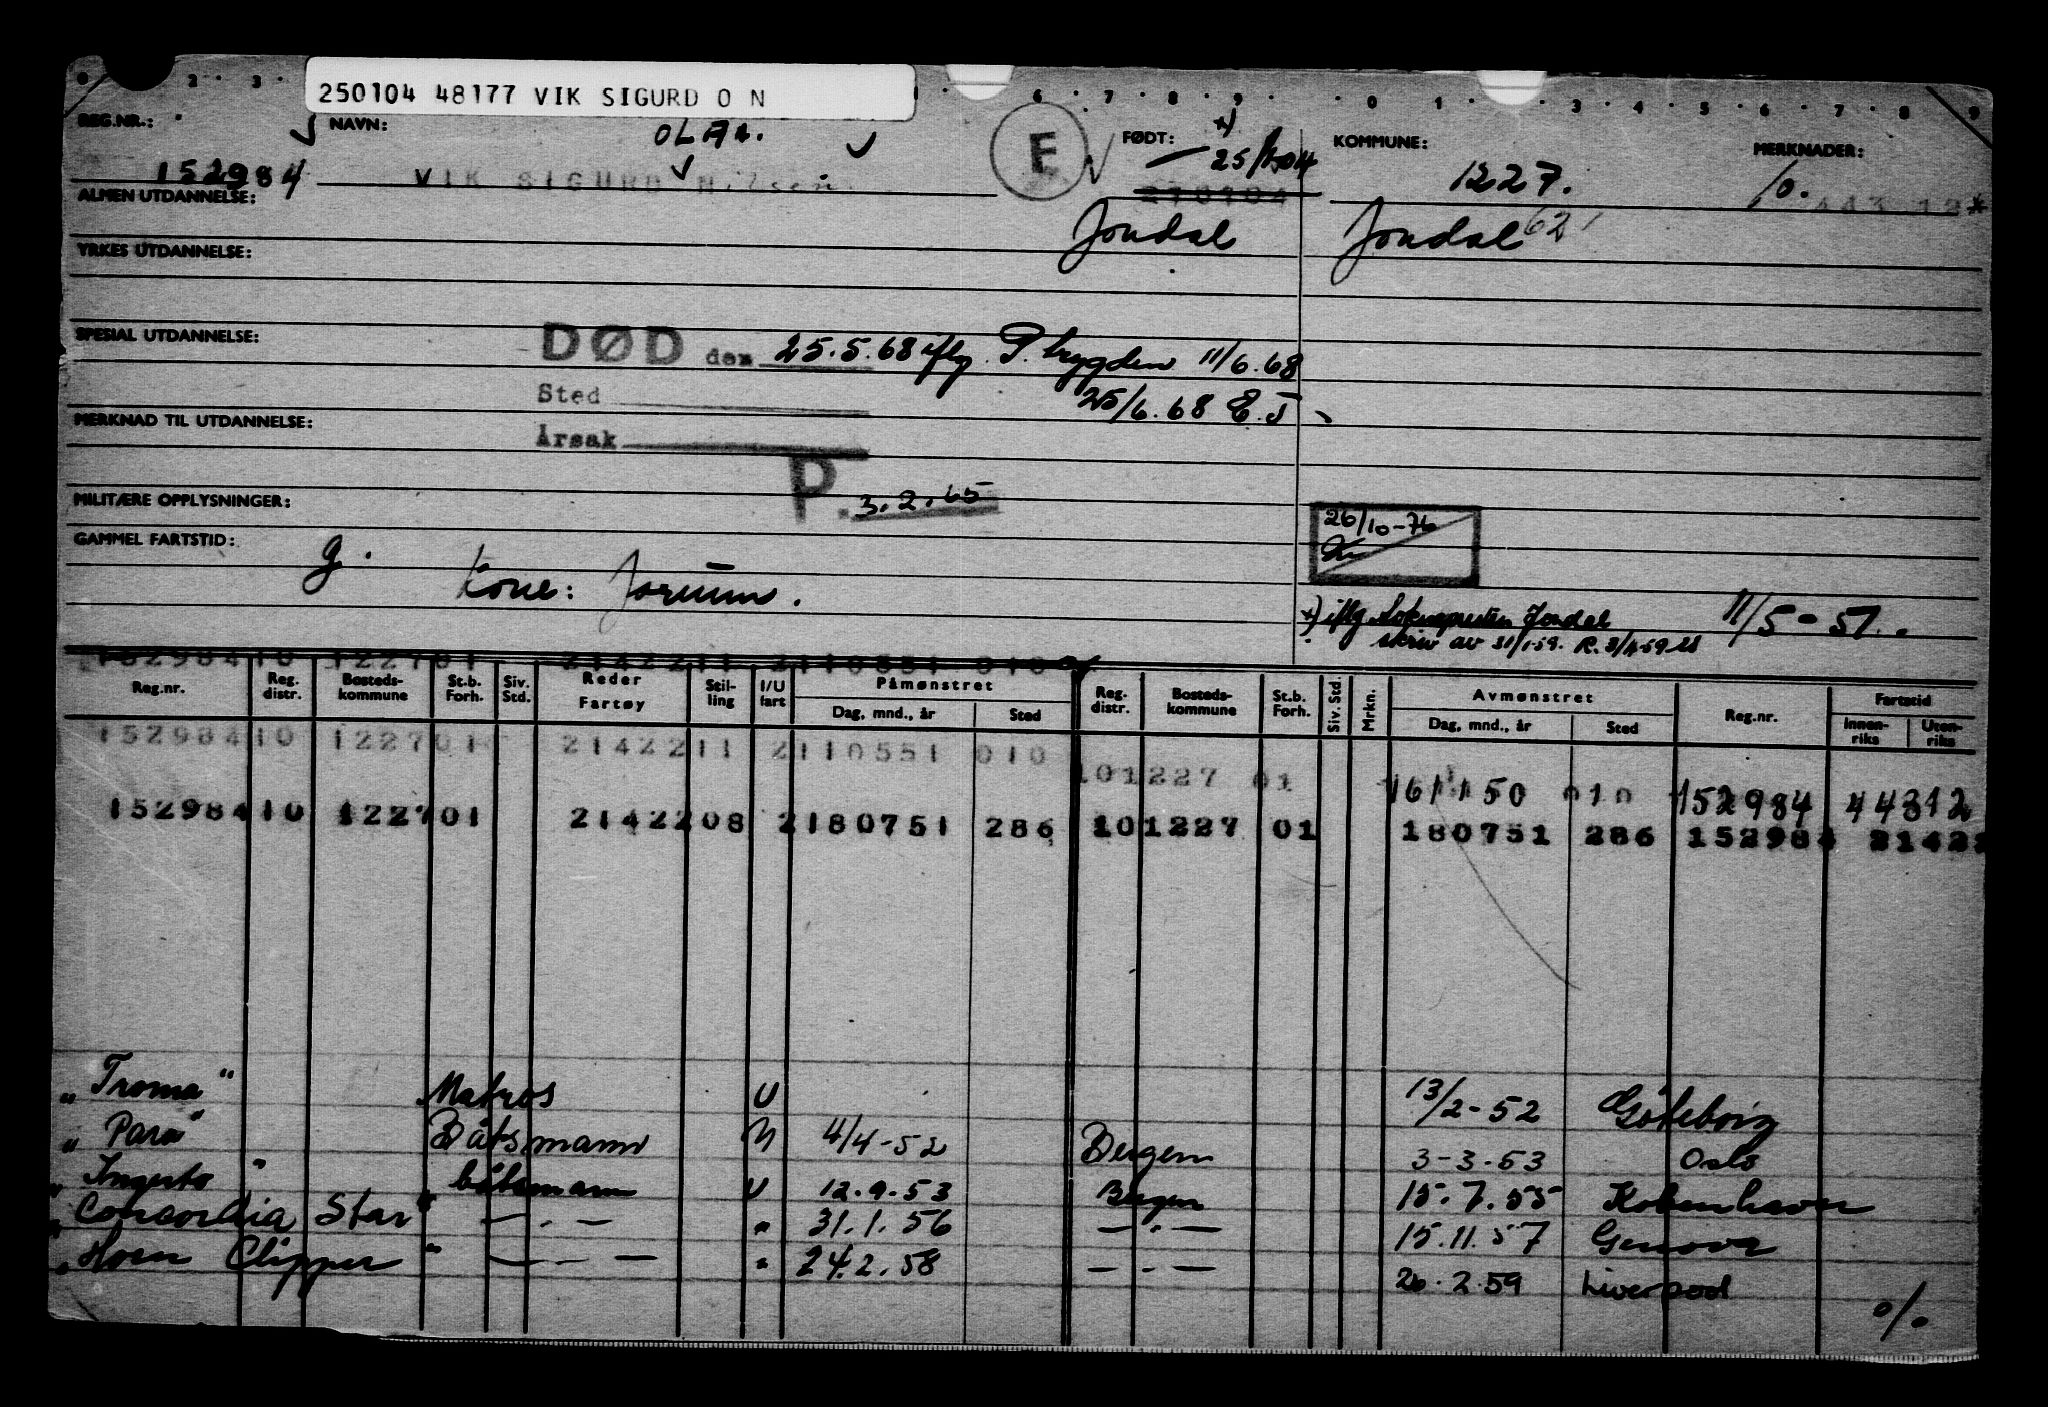 250104 48177 VIK SIGURD O N
REG.NR.:
NAVN:
FØDT:
KOMMUNE:
MERKNADER:
152984
VIK SIGURD Nilsen
E
*) 25/1-04
270104
1227.
Jondal
Jondal
ALMEN UTDANNELSE:
YRKES UTDANNELSE:
SPESIAL UTDANNELSE:
DØD den 25.5.68 iflg. P.trygden 11/6.68
Sted
25/6.68 E.J
MERKNAD TIL UTDANNELSE:
Årsak
P. 3.2.65
MILITÆRE OPPLYSNINGER:
26/10-76
GAMMEL FARTSTID:
g.
Kone:
*) iflg Soknepresten Jondal
skriv av 31/1-59.
11/5-51.
Reg.nr. Reg. distr. Bosteds-kommune St.b. Forh. Siv. Std. Reder Fartøy Stil-ling I/U fart Påmønstret Dag, mnd., år Sted Reg. distr. Bosteds-kommune St.b. Forh. Siv. Std. Mrkn. Avmønstret Dag, mnd., år Sted Reg.nr. Fartstid Innen-riks Uten-riks
152984 10 1227 01 2142211 2110551 010 101227 01 161150 010 152984 44312
152984 10 1227 01 2142208 2180751 286 101227 01 180751 286 152984 2142
"Troma" Matros U 13/2-52 Göteborg
"Para" Båtsmann U 4/4-52 Bergen 3-3-53 Oslo
"Ingerto" båtsmann U 12.9.53 Bergen 15.7.55 Kobenhavn
"Concordia Star" — . — " 31.1.56 — . — 15.11.57 Genova
"Hoen Clipper" — . — " 24.2.58 — . — 26.2.59 Liverpool
o/.